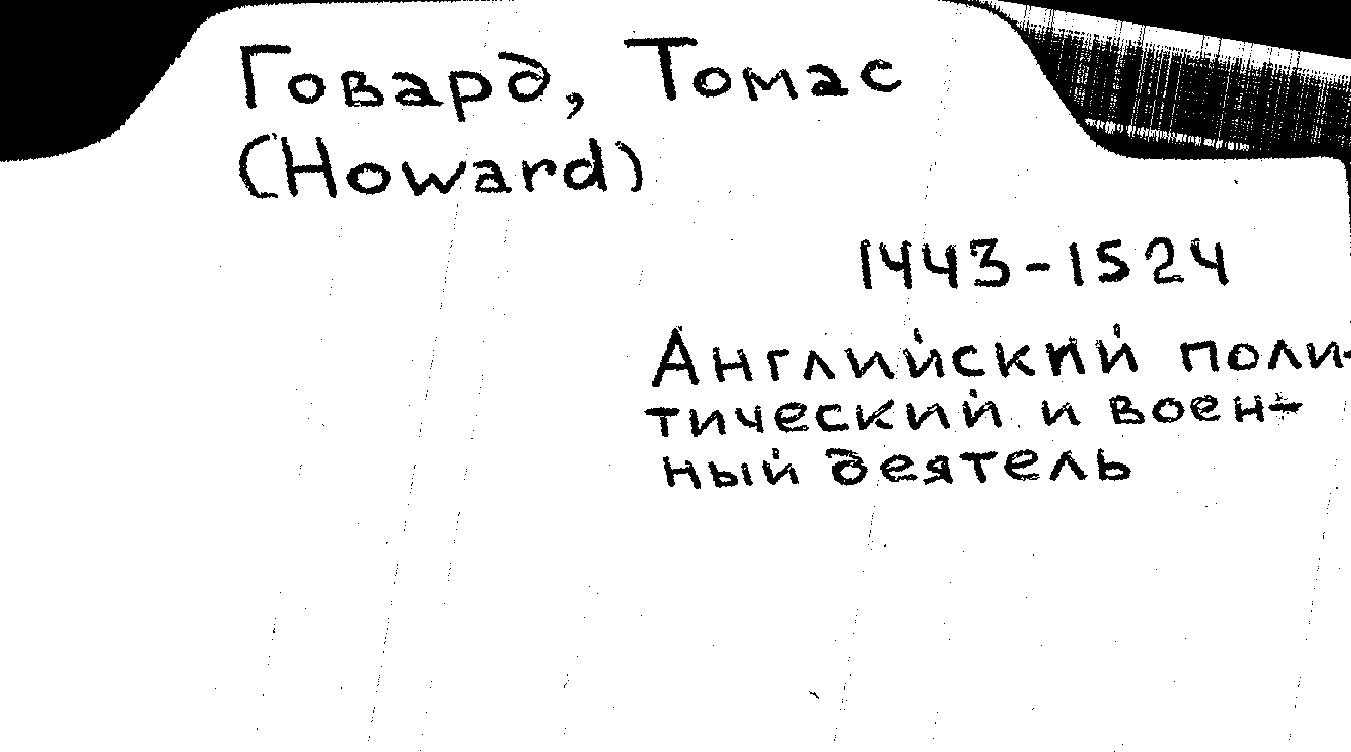 Говард, Томас
(Howard)
1443-1524
Английский поли-
тический и воен-
ный деятель